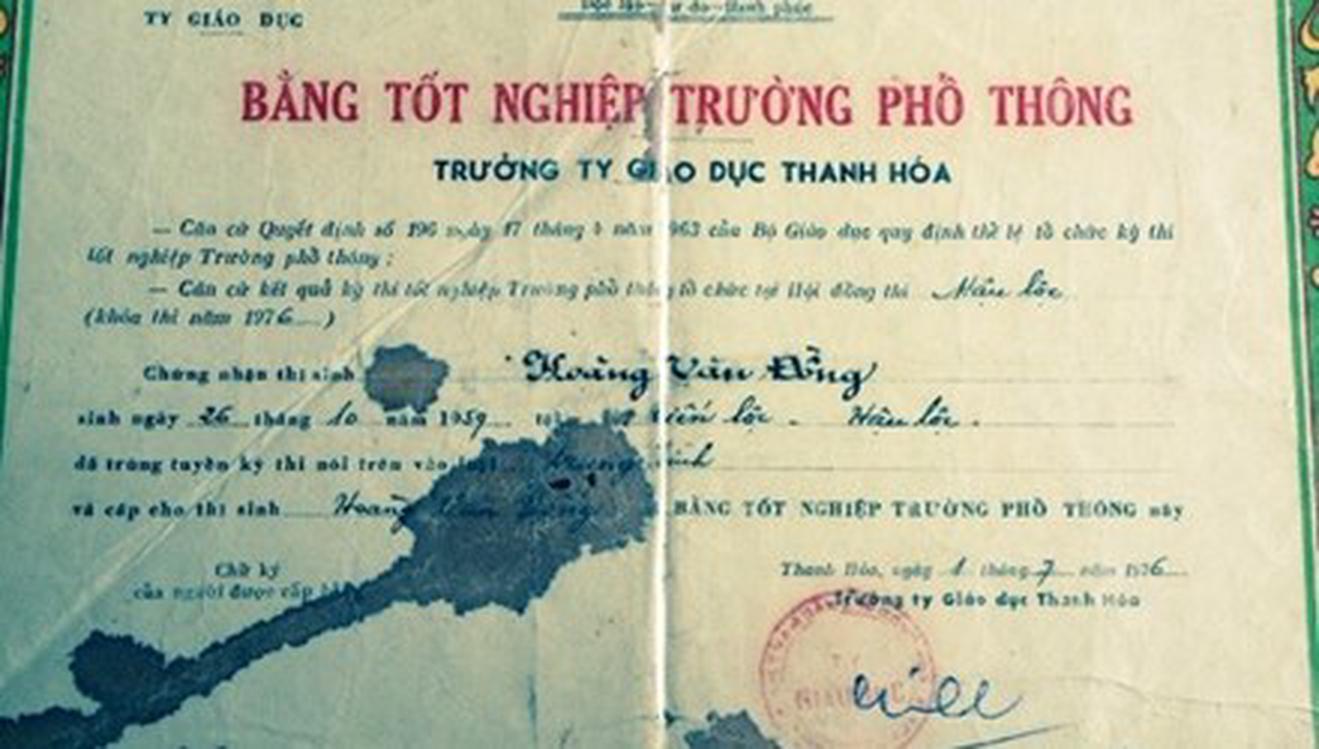 Độc lập - Tự do - Hạnh phúc
TY GIÁO DỤC
BẰNG TỐT NGHIỆP TRƯỜNG PHỔ THÔNG
TRƯỞNG TY GIÁO DỤC THANH HÓA
— Căn cứ Quyết định số 196 ngày 17 tháng năm 963 của Bộ Giáo dục quy định thể lệ tổ chức kỳ thi
tốt nghiệp Trường phổ thông ;
— Căn cứ kết quả kỳ thi tốt nghiệp Trường phổ thông tổ chức tại Hội đồng thi Hậu lộc
(khóa thi năm 1976)
Chứng nhận thí sinh Hoàng Văn Đồng
sinh ngày 26 tháng 10 năm 1959 tại lộc - Hậu lộc.
đã trúng tuyển kỳ thi nói trên vào loại trung bình
và cấp cho thí sinh Hoàng Văn Đồng BẰNG TỐT NGHIỆP TRƯỜNG PHỔ THÔNG này
Chữ ký
của người được cấp
Thanh Hóa, ngày 1 tháng 7 năm 1976
Trưởng ty Giáo dục Thanh Hóa
TY
GIÁO DỤC